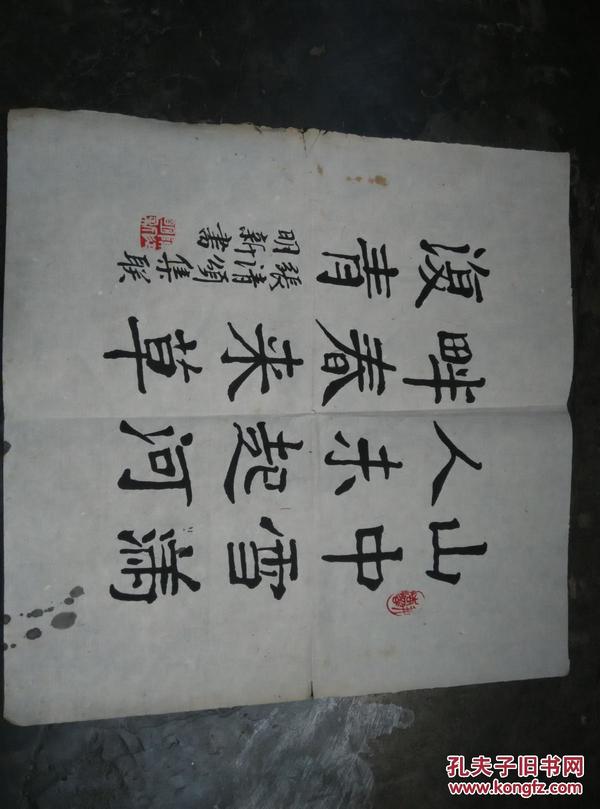 山中雪滿
人未起河
畔春来草
復青
張清集聯
明新書
孔夫子旧书网
www.kongfz.com